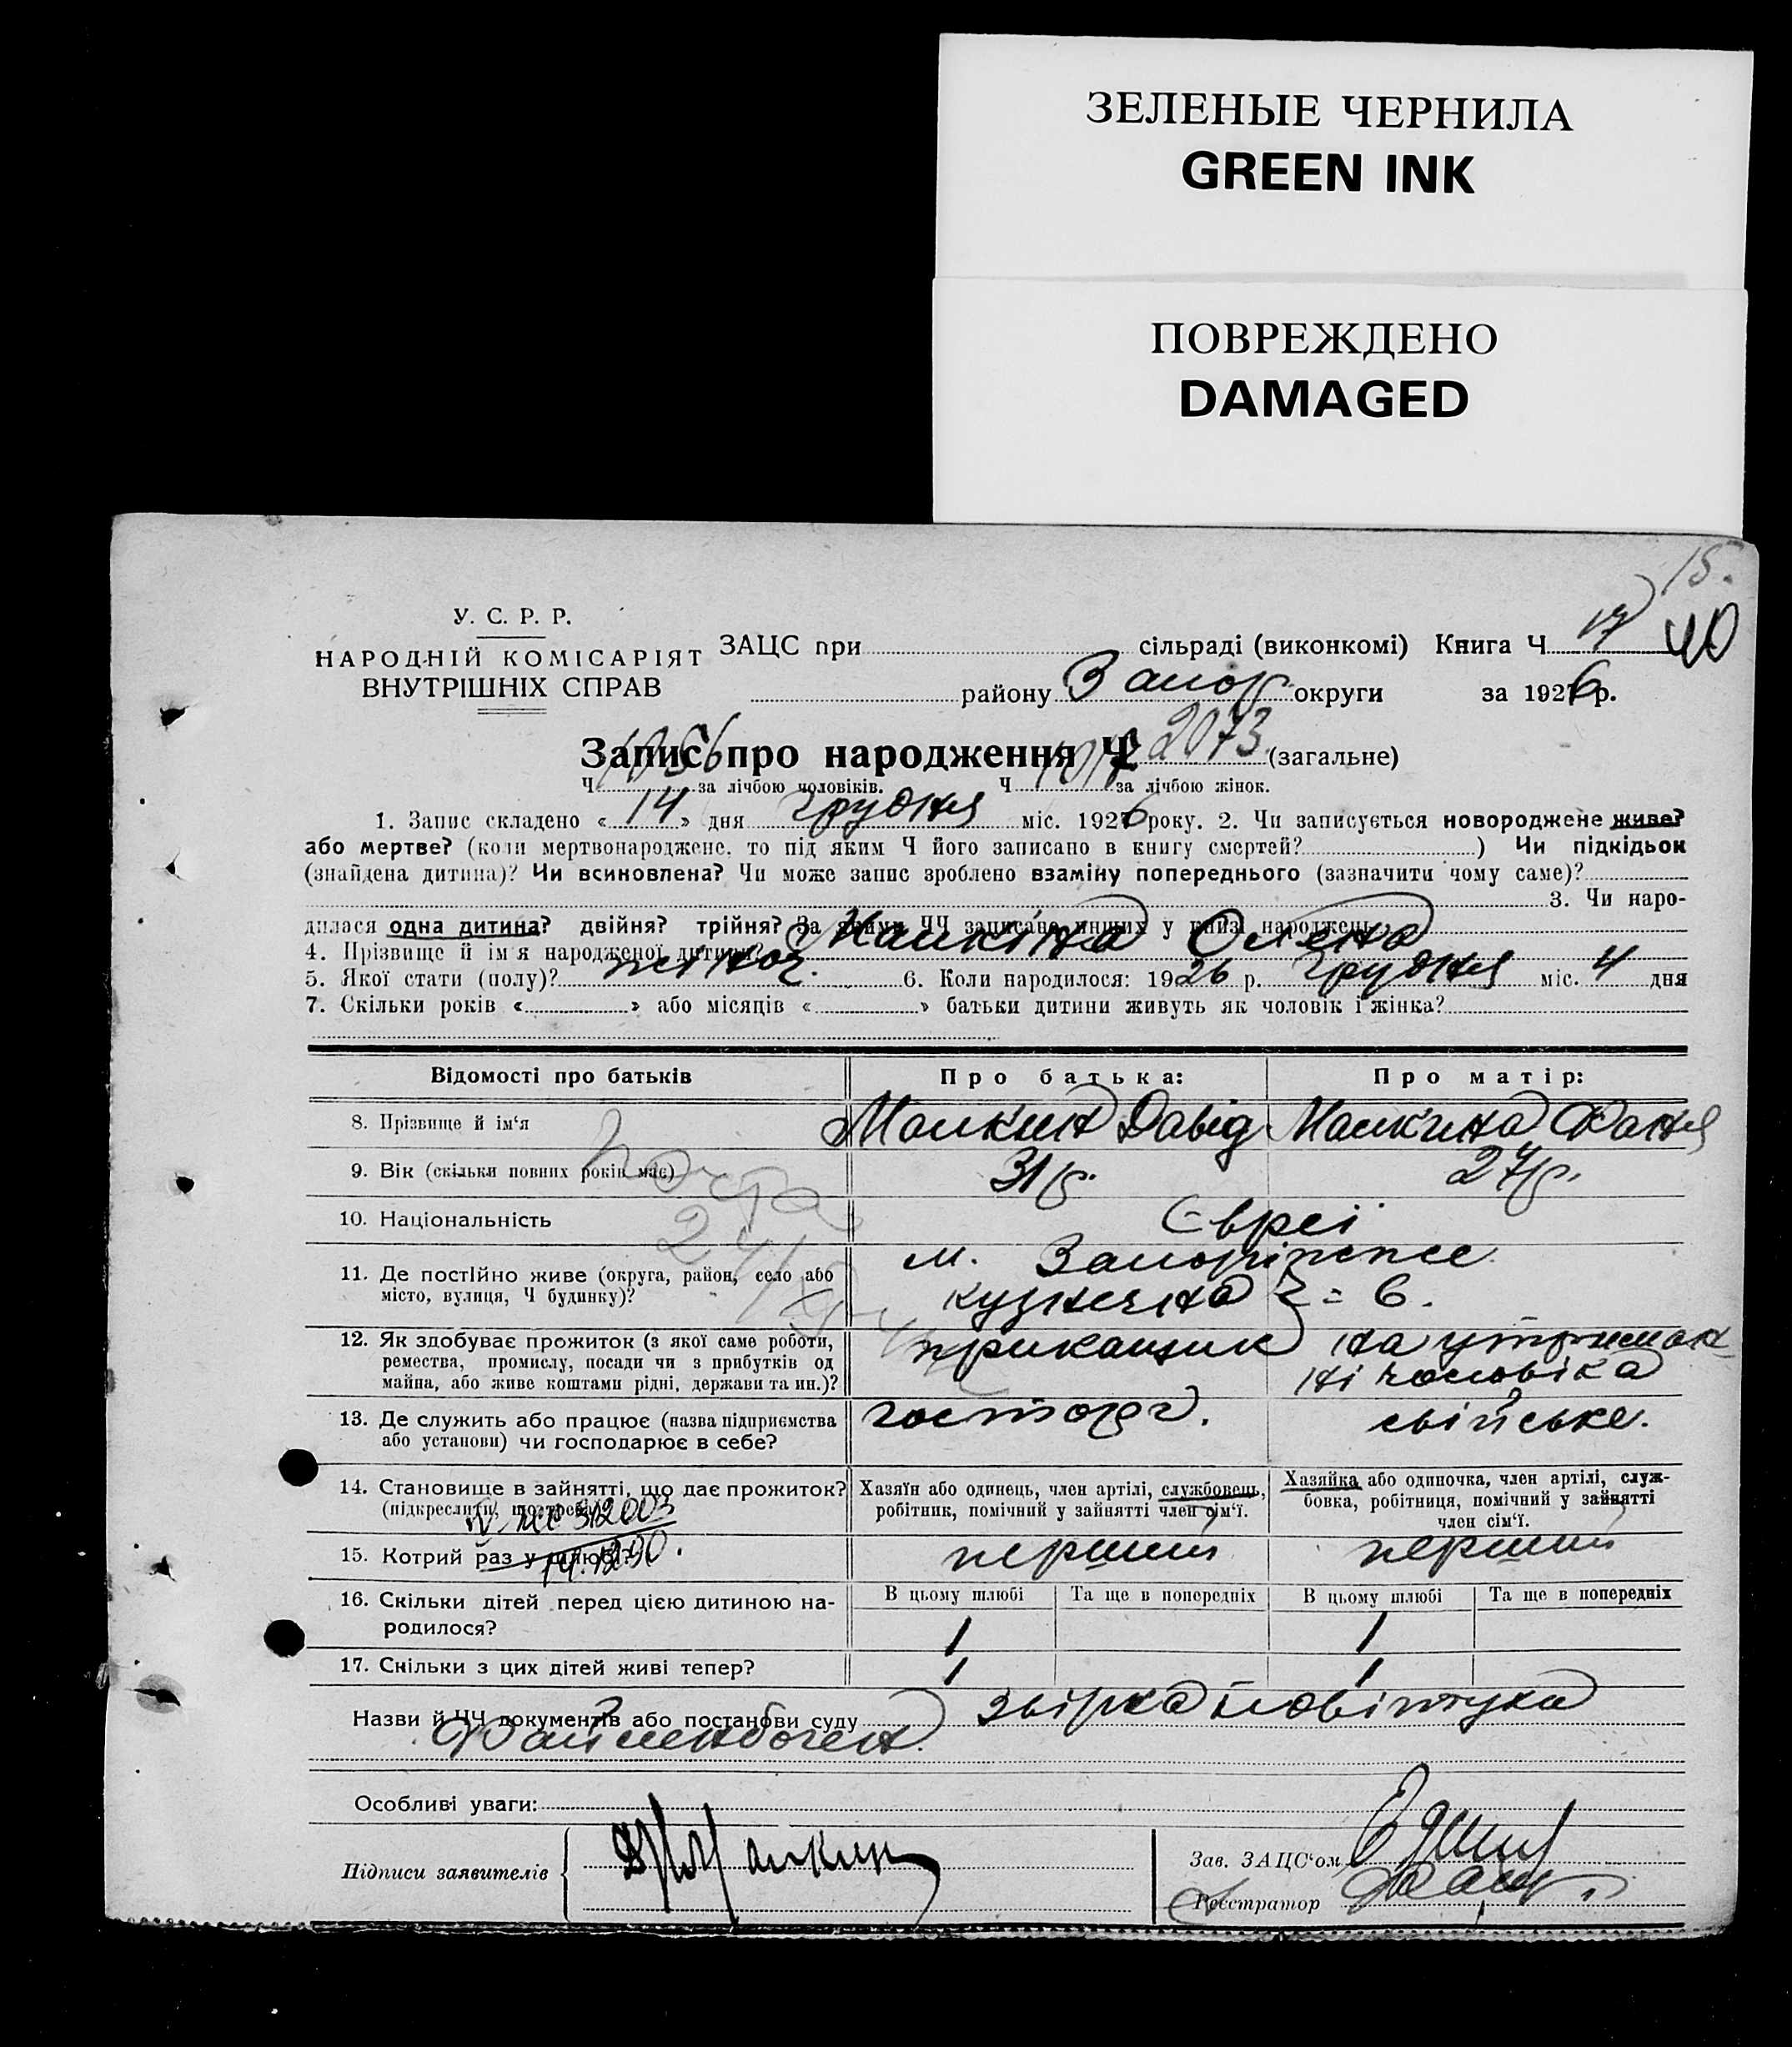 ЗЕЛЕНЫЕ ЧЕРНИЛА
GREEN INK
ПОВРЕЖДЕНО
DAMAGED
15.
У. С. Р. Р.
НАРОДНІЙ КОМІСАРІЯТ
ВНУТРІШНІХ СПРАВ
ЗАЦС при сільраді (виконкомі) Книга Ч 17 40
району Запор. округи за 1926 р.
Запис про народження Ч 2073 (загальне)
Ч 1056 за лічбою чоловіків. Ч 1017 за лічбою жінок.
1. Запис складено «14» дня грудня міс. 1926 року. 2. Чи записується новороджене живе?
або мертве? (коли мертвонароджене, то під яким Ч його записано в книгу смертей? ) Чи підкідьок
(знайдена дитина)? Чи всиновлена? Чи може запис зроблено взаміну попереднього (зазначити чому саме)?
3. Чи наро-
дилася одна дитина? двійня? трійня? За якими ЧЧ записано инших у книзі народжень
4. Прізвище й ім'я народженої дитини? Малкіна Олена
5. Якої стати (полу)? жіноч. 6. Коли народилося: 1926 р. Грудня міс. 4 дня
7. Скільки років « » або місяців « » батьки дитини живуть як чоловік і жінка?
Відомості про батьків Про батька: Про матір:
8. Прізвище й ім'я Малкин Давід Малкина Фаня
9. Вік (скільки повних років має) 31 р. 27 р.
10. Національність Євреї
11. Де постійно живе (округа, район, село або
місто, вулиця, Ч будинку)?
м. Запоріжже
кузнечна Ч = 6.
12. Як здобуває прожиток (з якої саме роботи,
ремества, промислу, посади чи з прибутків од
майна, або живе коштами рідні, держави та ин.)?
прикащик на утриман
ні чоловіка
13. Де служить або працює (назва підприємства
або установи) чи господарює в себе?
госторг. свійське.
14. Становище в зайнятті, що дає прожиток?
(підкреслити, що треба)
Хазяїн або одинець, член артілі, службовець,
робітник, помічний у зайнятті член сім'ї.
Хазяйка або одиночка, член артілі, служ-
бовка, робітниця, помічний у зайнятті
член сім'ї.
312003
15. Котрий раз у шлюбі? перший перший
16. Скільки дітей перед цією дитиною на-
родилося?
В цьому шлюбі Та ще в попередніх В цьому шлюбі Та ще в попередніх
1 1
17. Скільки з цих дітей живі тепер? 1 1
Назви й ЧЧ документів або постанови суду звірка повітуха
Файненбоген.
Особливі уваги:
Підписи заявителів Малкин
Зав. ЗАЦС'ом
Реєстратор